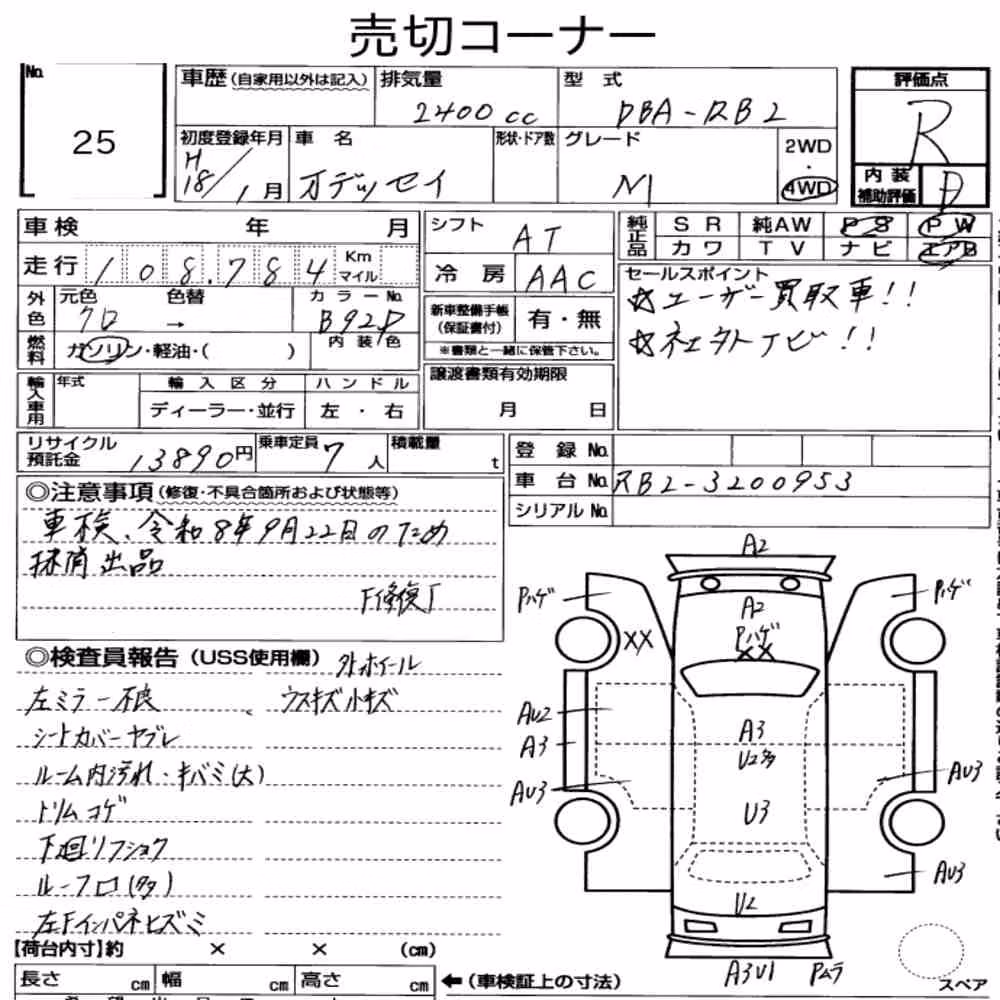 売切コーナー
No. 25
車歴 (自家用以外は記入) 排気量 2400 cc 型式 DBA-RB2 評価点 R
初度登録年月 H18/1月 車名 オデッセイ 形状・ドア数 グレード M 2WD・4WD 内装補助評価 D
車検 年 月 シフト AT 純正品 SR 純AW PS PW
カワ TV ナビ エアB
走行 108,784 Km マイル 冷房 AAC
セールスポイント
☆ユーザー買取車!!
☆社外ナビ!!
外色 元色 クロ → 色替 カラーNo. B92P 内装色
新車整備手帳(保証書付) 有・無
※書類と一緒に保管下さい。
燃料 ガソリン・軽油・( )
輸入車用 年式 輸入区分 ハンドル
ディーラー・並行 左・右
譲渡書類有効期限
月 日
リサイクル預託金 13890円 乗車定員 7人 積載量 t
登録No.
車台No. RB2-3200953
シリアルNo.
◎注意事項 (修復・不具合箇所および状態等)
車検、令和8年9月22日のため
抹消出品
F修復T
◎検査員報告 (USS使用欄) 外ホイール
左ミラー不良 ウスキズ小キズ
シートカバーヤブレ
ルーム内汚れ・キバミ(大)
トリムコゲ
下廻リフショク
ルーフロ(多)
左Fインパネヒズミ
【荷台内寸】約 × × (cm)
長さ cm 幅 cm 高さ cm ←(車検証上の寸法)
A2
Pハゲ A2 Pハゲ
XX Pハゲ XX
AU2 A3
A3 U2多
AU3 U3 AU3
AU3
U2
A3U1 Pムラ
スペア